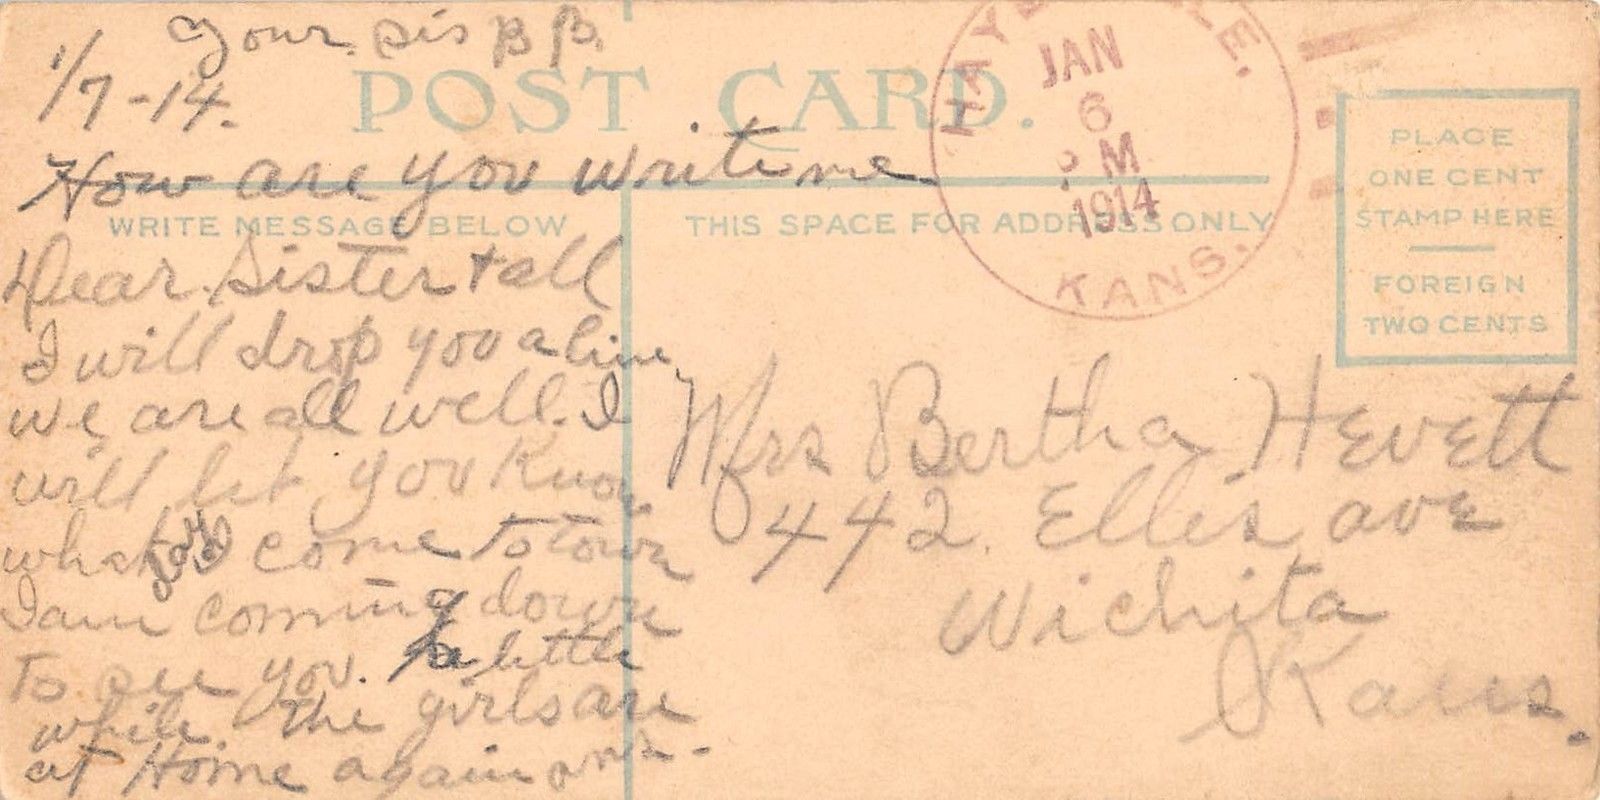 Your Sis B B.
1/7-14.
POST CARD.
How are you write me
WRITE MESSAGE BELOW
Dear Sister + all
I will drop you a line
we are all well. I
will let you know
what day I come to town
I am coming down
to see you. a little
while. The girls are
at Home again
THIS SPACE FOR ADDRESS ONLY
JAN
6
PM
1914
KANS.
PLACE
ONE CENT
STAMP HERE
FOREIGN
TWO CENTS
Mrs Bertha Hevett
442. Ellis ave
Wichita
Kans.